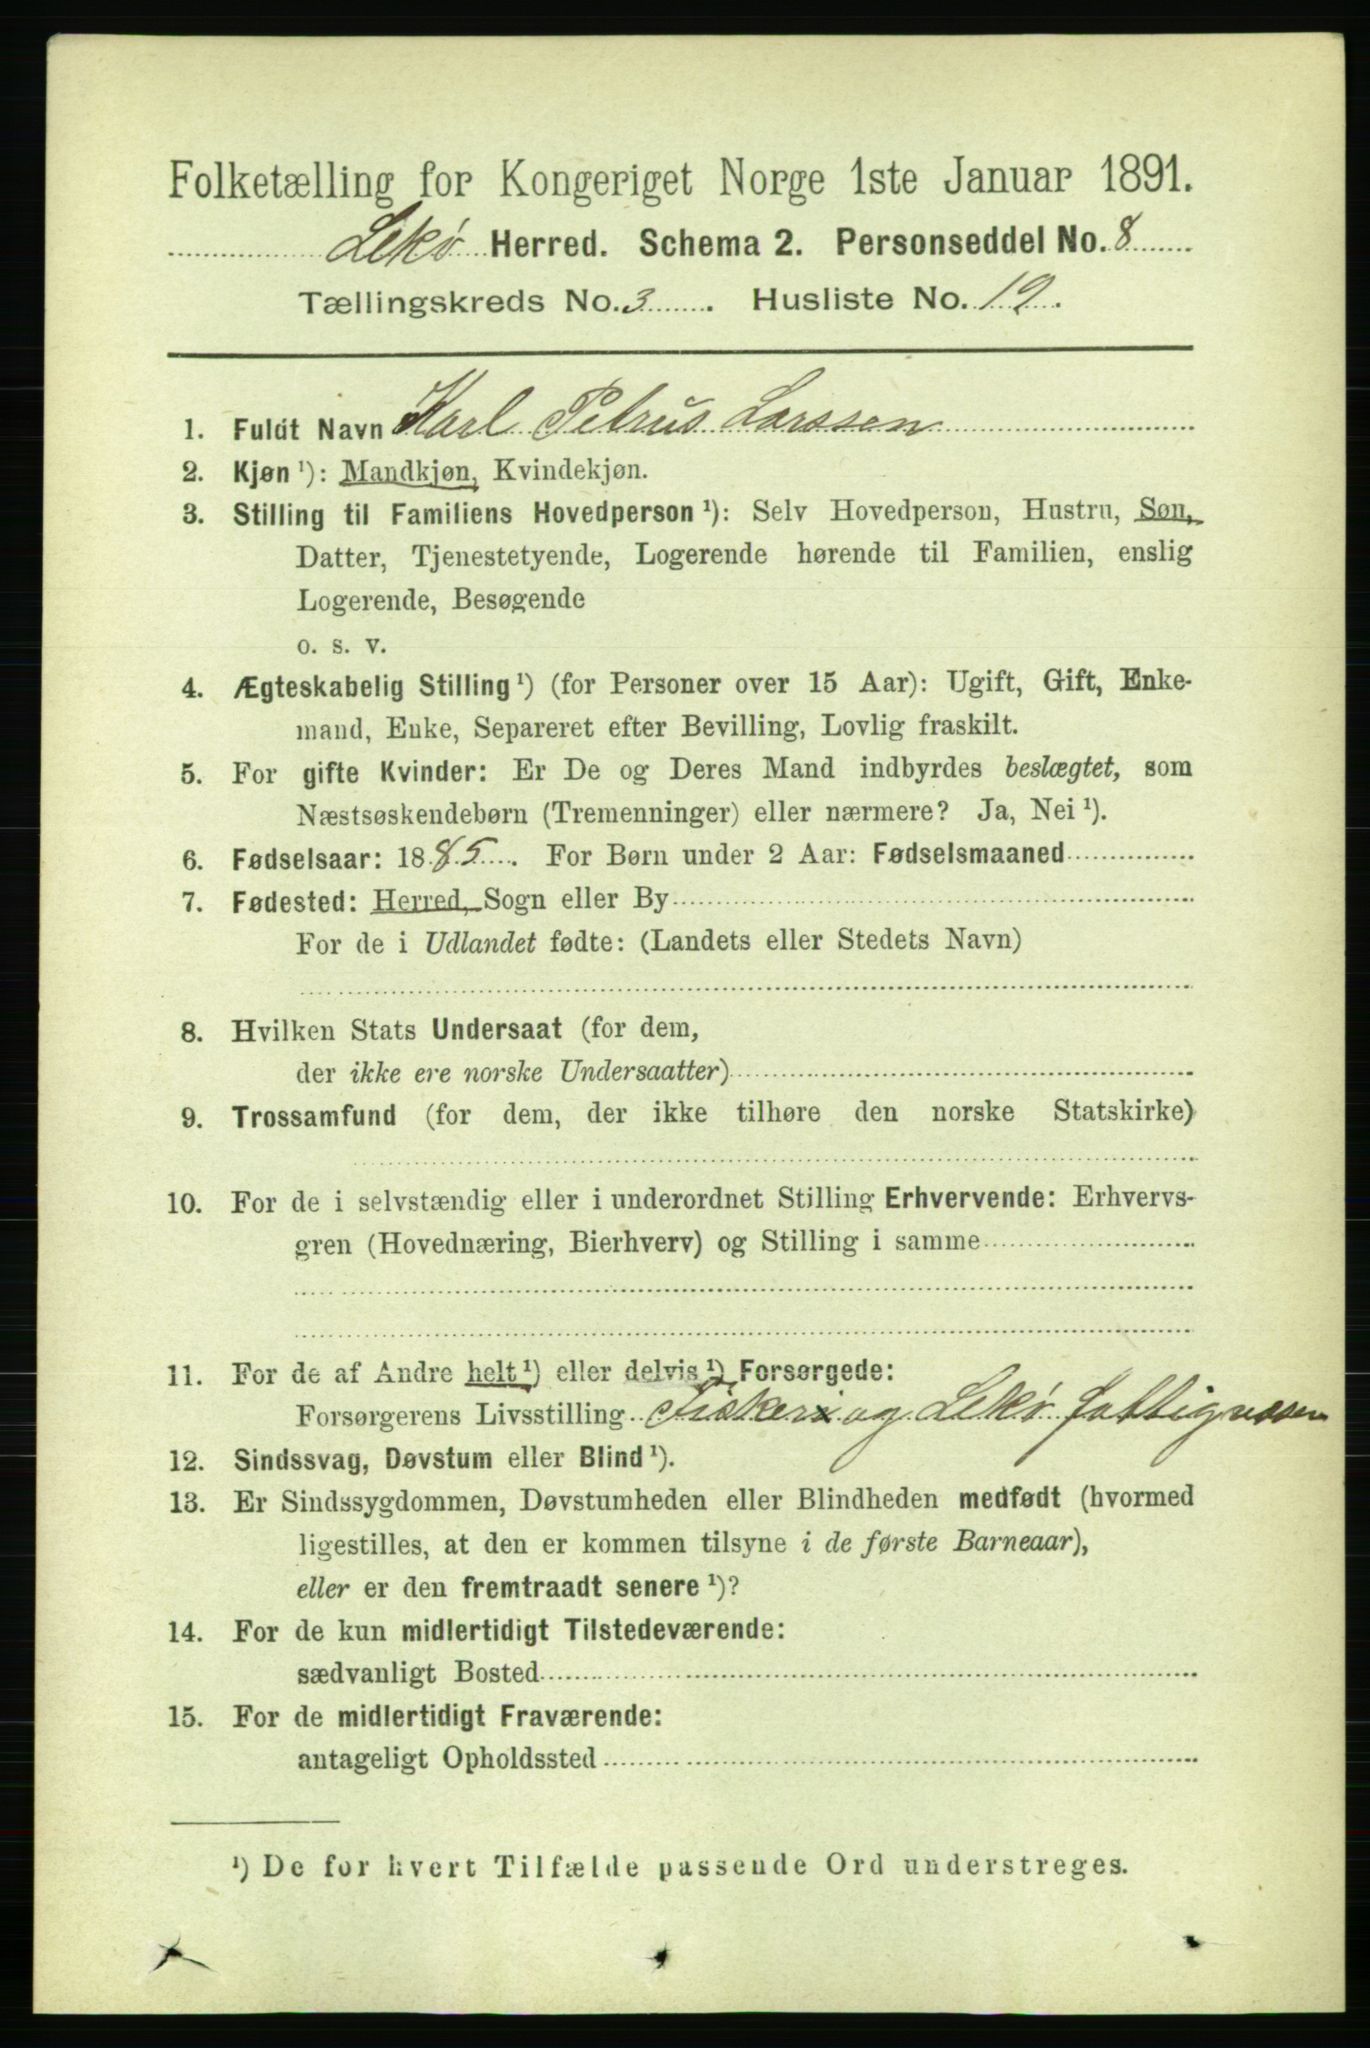 Folketælling for Kongeriget Norge 1ste Januar 1891.
Lekø Herred. Schema 2. Personseddel No. 8
Tællingskreds No. 3. Husliste No. 19.
1. Fuldt Navn Karl Petrus Larssen
2. Kjøn ¹): Mandkjøn, Kvindekjøn.
3. Stilling til Familiens Hovedperson ¹): Selv Hovedperson, Hustru, Søn,
Datter, Tjenestetyende, Logerende hørende til Familien, enslig
Logerende, Besøgende
o. s. v.
4. Ægteskabelig Stilling ¹) (for Personer over 15 Aar): Ugift, Gift, Enke-
mand, Enke, Separeret efter Bevilling, Lovlig fraskilt.
5. For gifte Kvinder: Er De og Deres Mand indbyrdes beslægtet, som
Næstsøskendebørn (Tremenninger) eller nærmere? Ja, Nei ¹).
6. Fødselsaar: 1885. For Børn under 2 Aar: Fødselsmaaned
7. Fødested: Herred, Sogn eller By
For de i Udlandet fødte: (Landets eller Stedets Navn)
8. Hvilken Stats Undersaat (for dem,
der ikke ere norske Undersaatter)
9. Trossamfund (for dem, der ikke tilhøre den norske Statskirke)
10. For de i selvstændig eller i underordnet Stilling Erhvervende: Erhvervs-
gren (Hovednæring, Bierhverv) og Stilling i samme
11. For de af Andre helt ¹) eller delvis ¹) Forsørgede:
Forsørgerens Livsstilling Fisker og Lekø fattigvæsen
12. Sindssvag, Døvstum eller Blind ¹).
13. Er Sindssygdommen, Døvstumheden eller Blindheden medfødt (hvormed
ligestilles, at den er kommen tilsyne i de første Barneaar),
eller er den fremtraadt senere ¹)?
14. For de kun midlertidigt Tilstedeværende:
sædvanligt Bosted
15. For de midlertidigt Fraværende:
antageligt Opholdssted
¹) De for hvert Tilfælde passende Ord understreges.